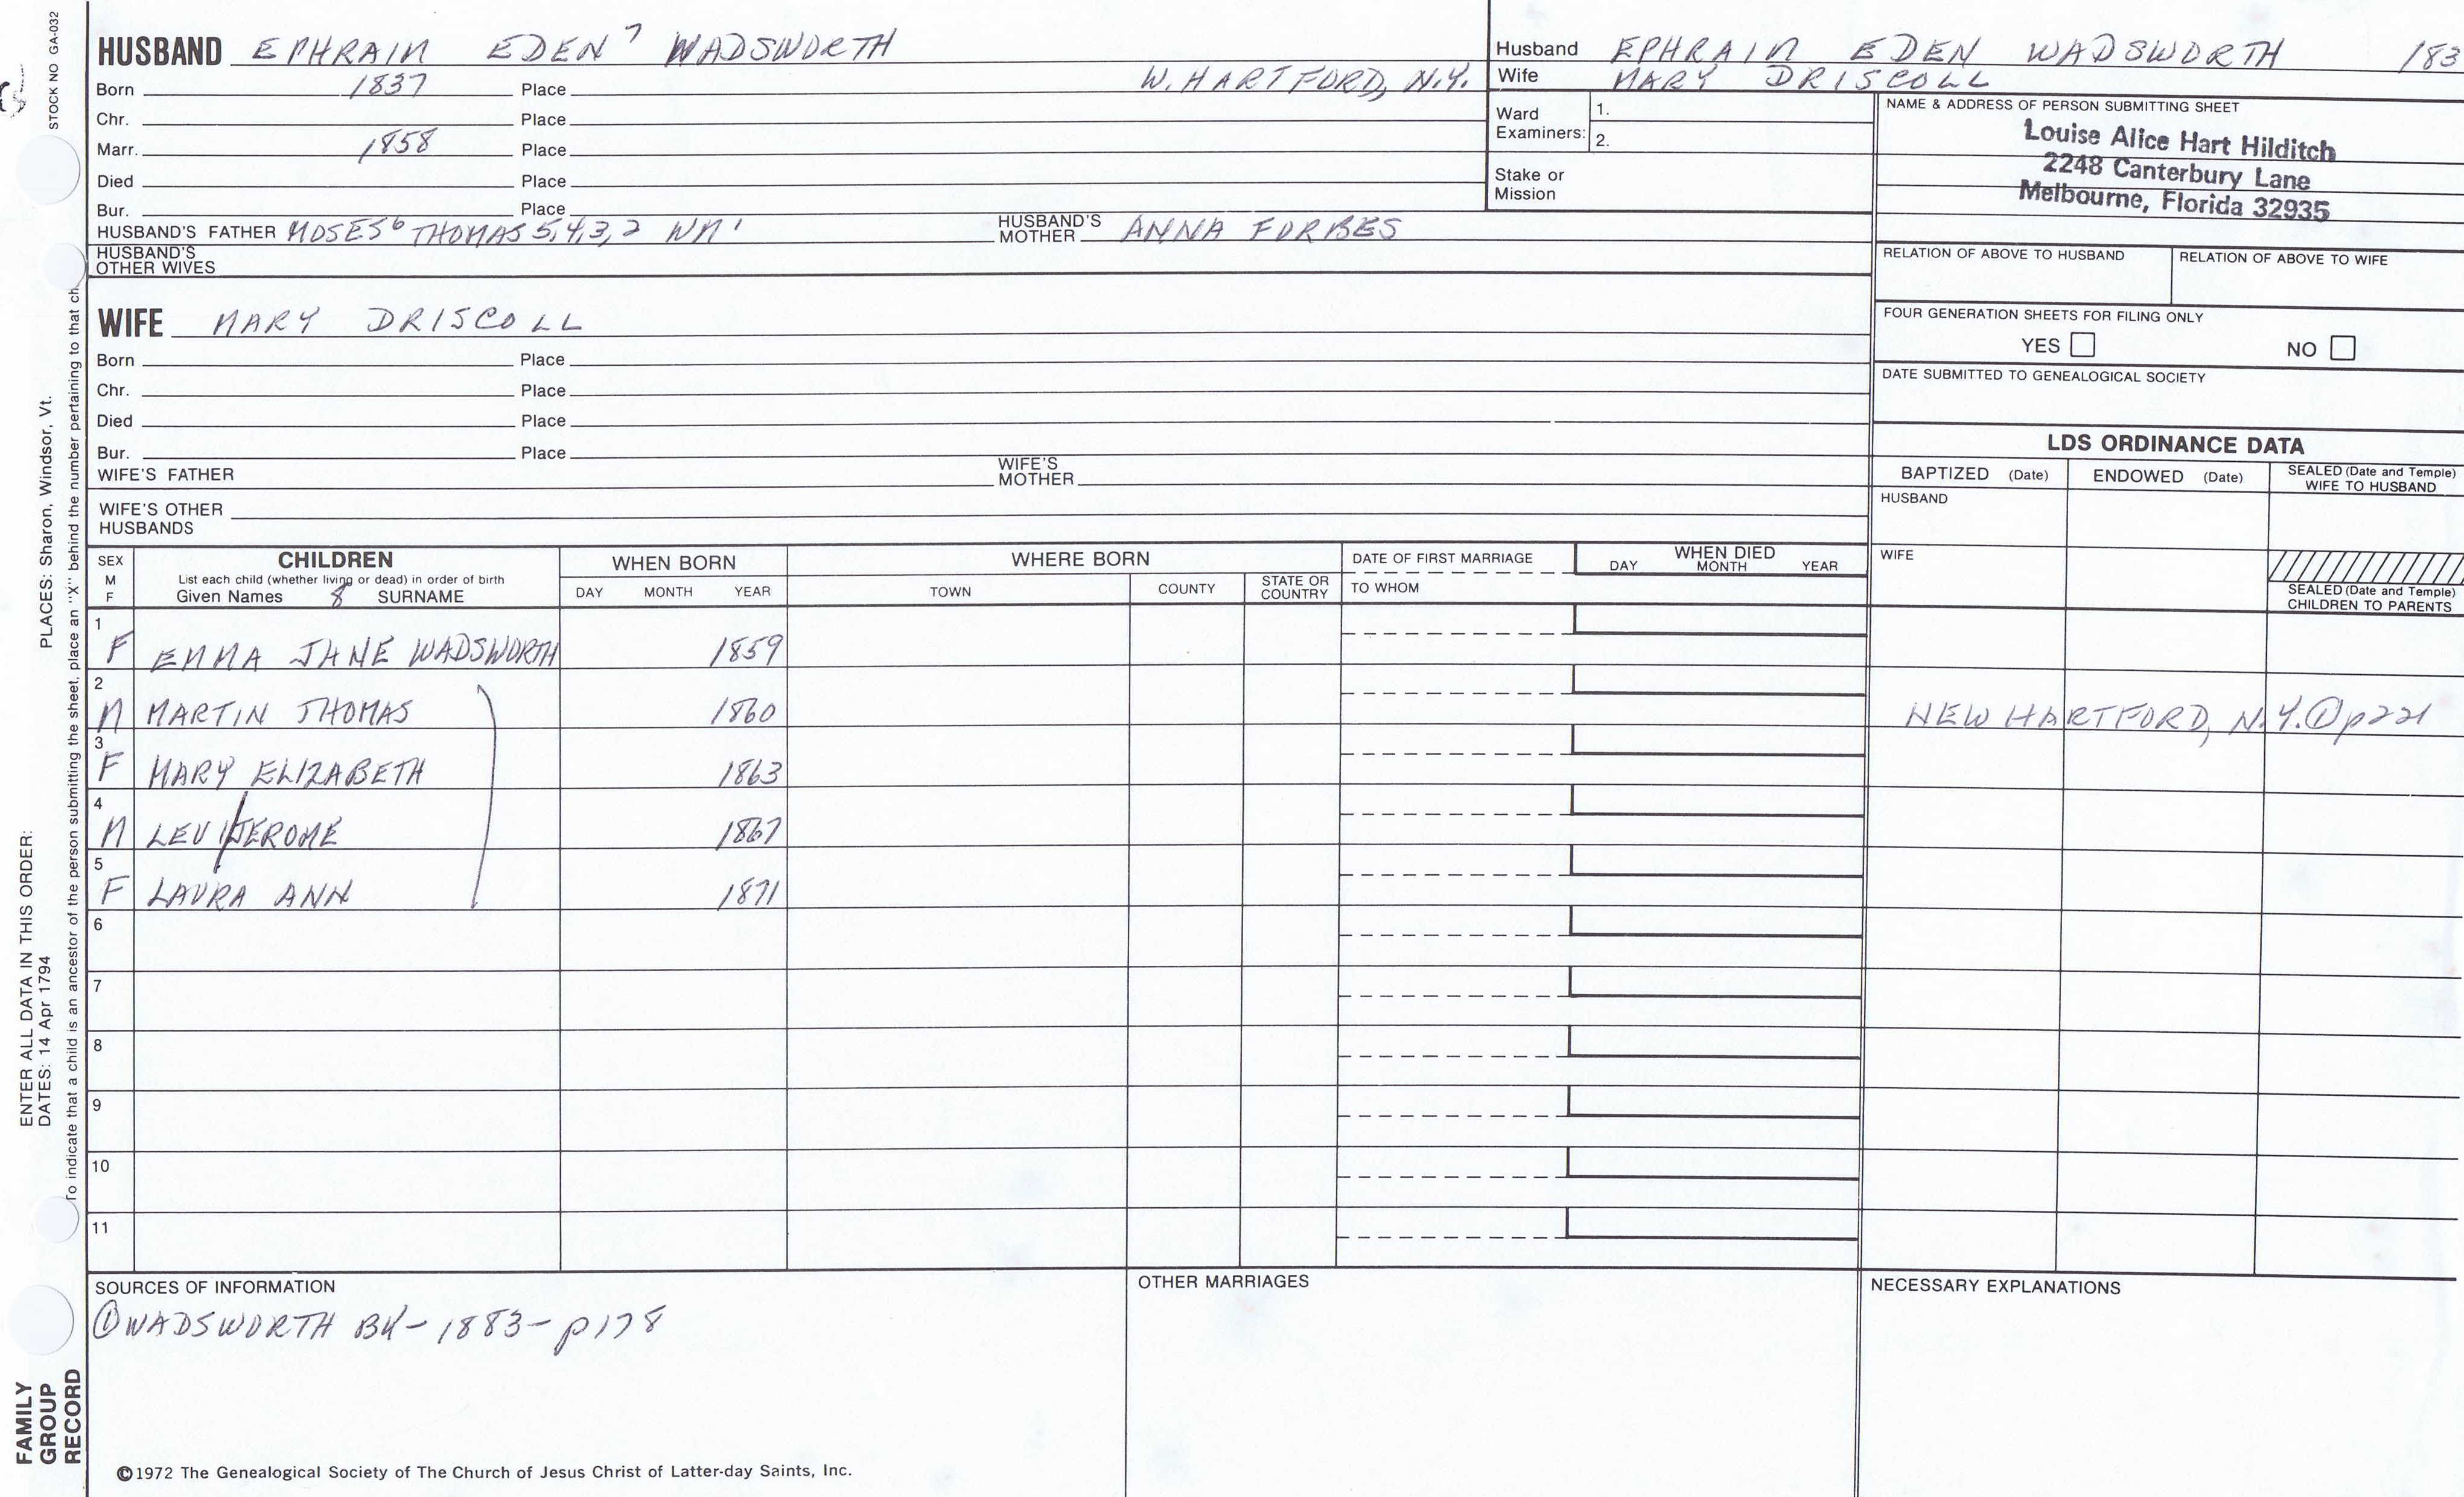 STOCK NO GA-032
PLACES: Sharon, Windsor, Vt.
ENTER ALL DATA IN THIS ORDER:
DATES: 14 Apr 1794
To indicate that a child is an ancestor of the person submitting the sheet, place an "X" behind the number pertaining to that ch
FAMILY
GROUP
RECORD
HUSBAND EPHRAIM EDEN 7 WADSWORTH
Born 1837 Place W. HARTFORD, N.Y.
Chr. Place
Marr. 1858 Place
Died Place
Bur. Place
HUSBAND'S FATHER MOSES 6 THOMAS 5,4,3,2 WM 1 HUSBAND'S MOTHER ANNA FORBES
HUSBAND'S
OTHER WIVES
WIFE MARY DRISCOLL
Born Place
Chr. Place
Died Place
Bur. Place
WIFE'S FATHER WIFE'S MOTHER
WIFE'S OTHER
HUSBANDS
Husband EPHRAIM EDEN WADSWORTH 183
Wife MARY DRISCOLL
Ward
Examiners:
1.
2.
Stake or
Mission
NAME & ADDRESS OF PERSON SUBMITTING SHEET
Louise Alice Hart Hilditch
2248 Canterbury Lane
Melbourne, Florida 32935
RELATION OF ABOVE TO HUSBAND RELATION OF ABOVE TO WIFE
FOUR GENERATION SHEETS FOR FILING ONLY
YES NO
DATE SUBMITTED TO GENEALOGICAL SOCIETY
LDS ORDINANCE DATA
BAPTIZED (Date) ENDOWED (Date) SEALED (Date and Temple)
WIFE TO HUSBAND
HUSBAND
WIFE
SEALED (Date and Temple)
CHILDREN TO PARENTS
SEX
M
F
CHILDREN
List each child (whether living or dead) in order of birth
Given Names 8 SURNAME
WHEN BORN
DAY MONTH YEAR
WHERE BORN
TOWN COUNTY STATE OR COUNTRY
DATE OF FIRST MARRIAGE
TO WHOM
WHEN DIED
DAY MONTH YEAR
1
F EMMA JANE WADSWORTH 1859
2
M MARTIN THOMAS 1860 NEW HARTFORD, N.Y. ① p221
3
F MARY ELIZABETH 1863
4
M LEVI/JEROME 1867
5
F LAURA ANN 1871
6
7
8
9
10
11
SOURCES OF INFORMATION
① WADSWORTH BK - 1883 - p178
OTHER MARRIAGES
NECESSARY EXPLANATIONS
©1972 The Genealogical Society of The Church of Jesus Christ of Latter-day Saints, Inc.